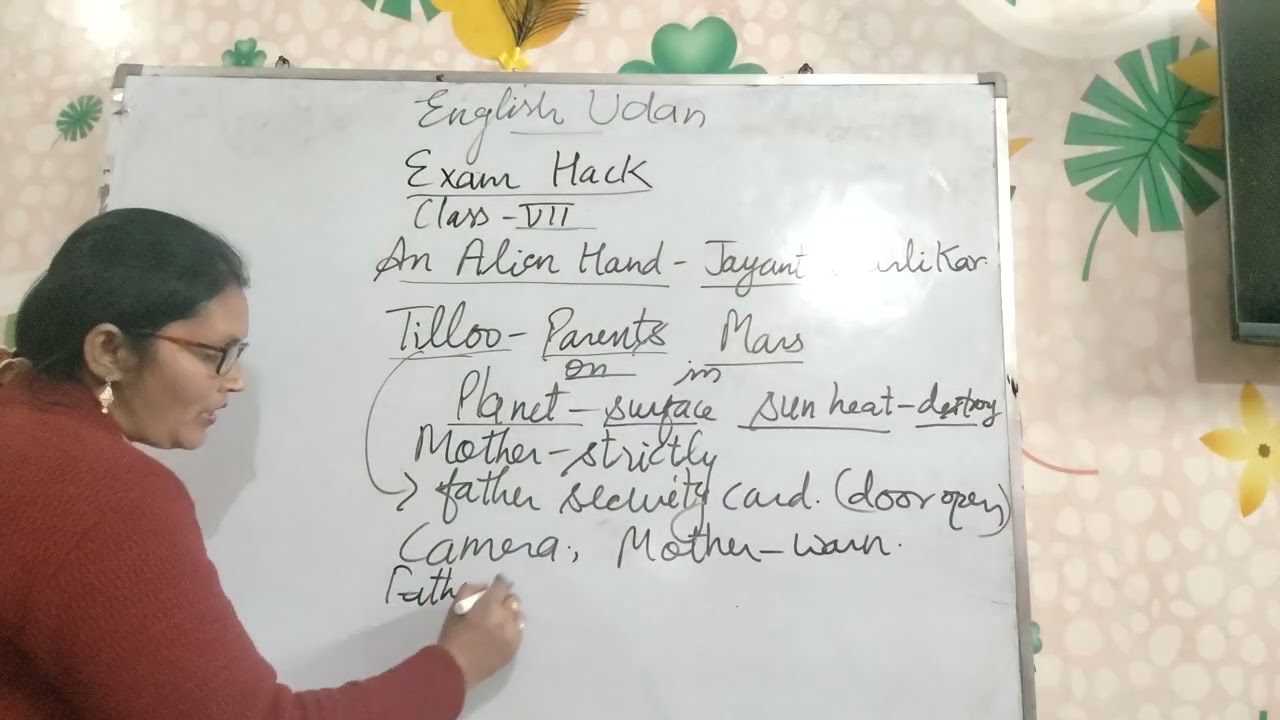 English Udan
Exam Hack
Class - VII
An Alien Hand - Jayant
Tilloo - Parents Mars
on in
Planet - surface sun heat - destroy
Mother - strictly
→ father security card. (door open)
Camera., Mother - warn.
Fathe